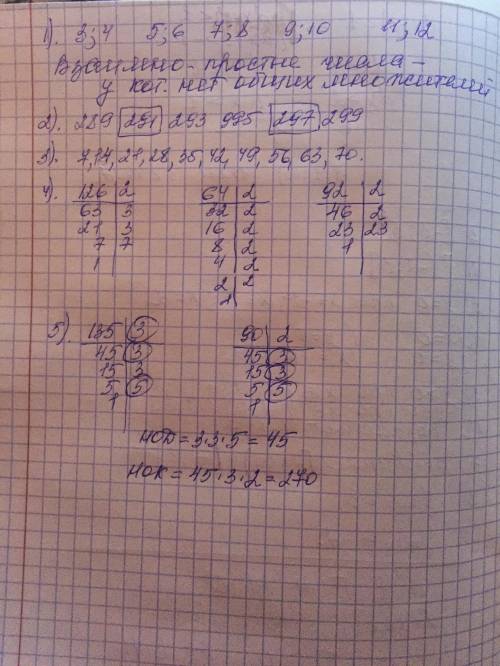 1). 3;4 5;6 7;8 9;10 11;12
Взаимно-простые числа-
у кот. нет общих множителей
2). 289 291 293 995 297, 299
3). 7,14,21,28,35,42,49,56,63,70.
4). 126 2 64 2 92 2
63 3 32 2 46 2
21 3 16 2 23 23
7 7 8 2 1
1 4 2
2 2
1
5) 135 3 90 2
45 3 45 3
15 3 15 3
5 5 5 5
1 1
НОД = 3·3·5 = 45
НОК = 45·3·2 = 270